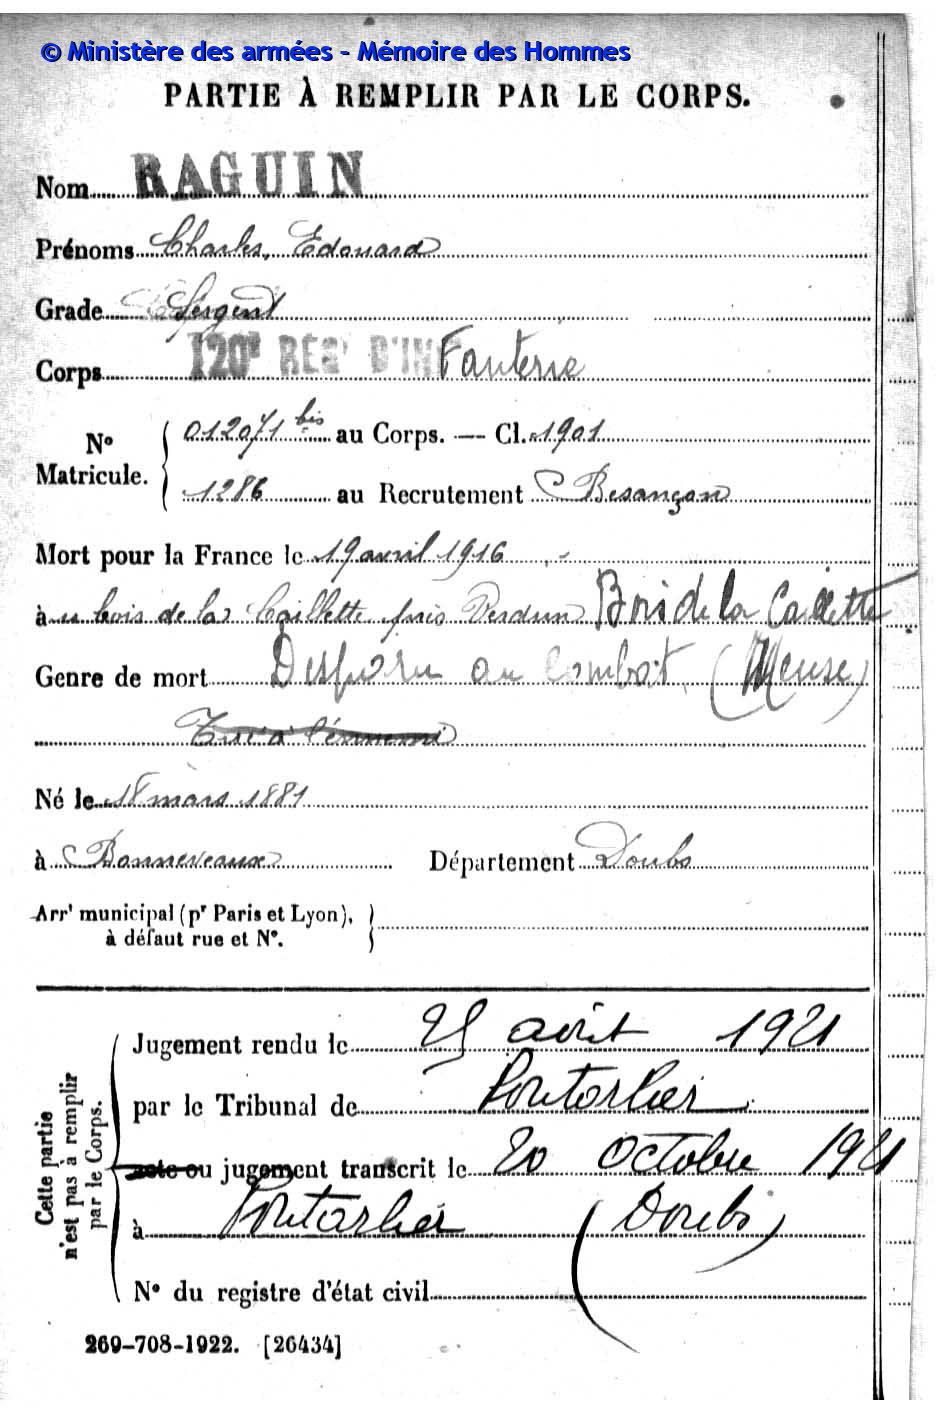 © Ministère des armées - Mémoire des Hommes
PARTIE À REMPLIR PAR LE CORPS.
Nom RAGUIN
Prénoms Charles, Edouard
Grade Sergent
Corps 120e RÉGt D'INFanterie
No Matricule. 012071 bis au Corps. — Cl. 1901
1286 au Recrutement Besançon
Mort pour la France le 19 avril 1916
à u bois de la Caillette près Verdun Bois de la Caillette
Genre de mort Disparu au combat (Meuse)
Tué à l'ennemi
Né le 18 mars 1881
à Bonnevaux Département Doubs
Arrt municipal (pr Paris et Lyon),
à défaut rue et No.
Cette partie n'est pas à remplir par le Corps.
Jugement rendu le 25 août 1921
par le Tribunal de Pontarlier
acte ou jugement transcrit le 20 octobre 1921
à Pontarlier (Doubs)
No du registre d'état civil
269-708-1922. [26434]